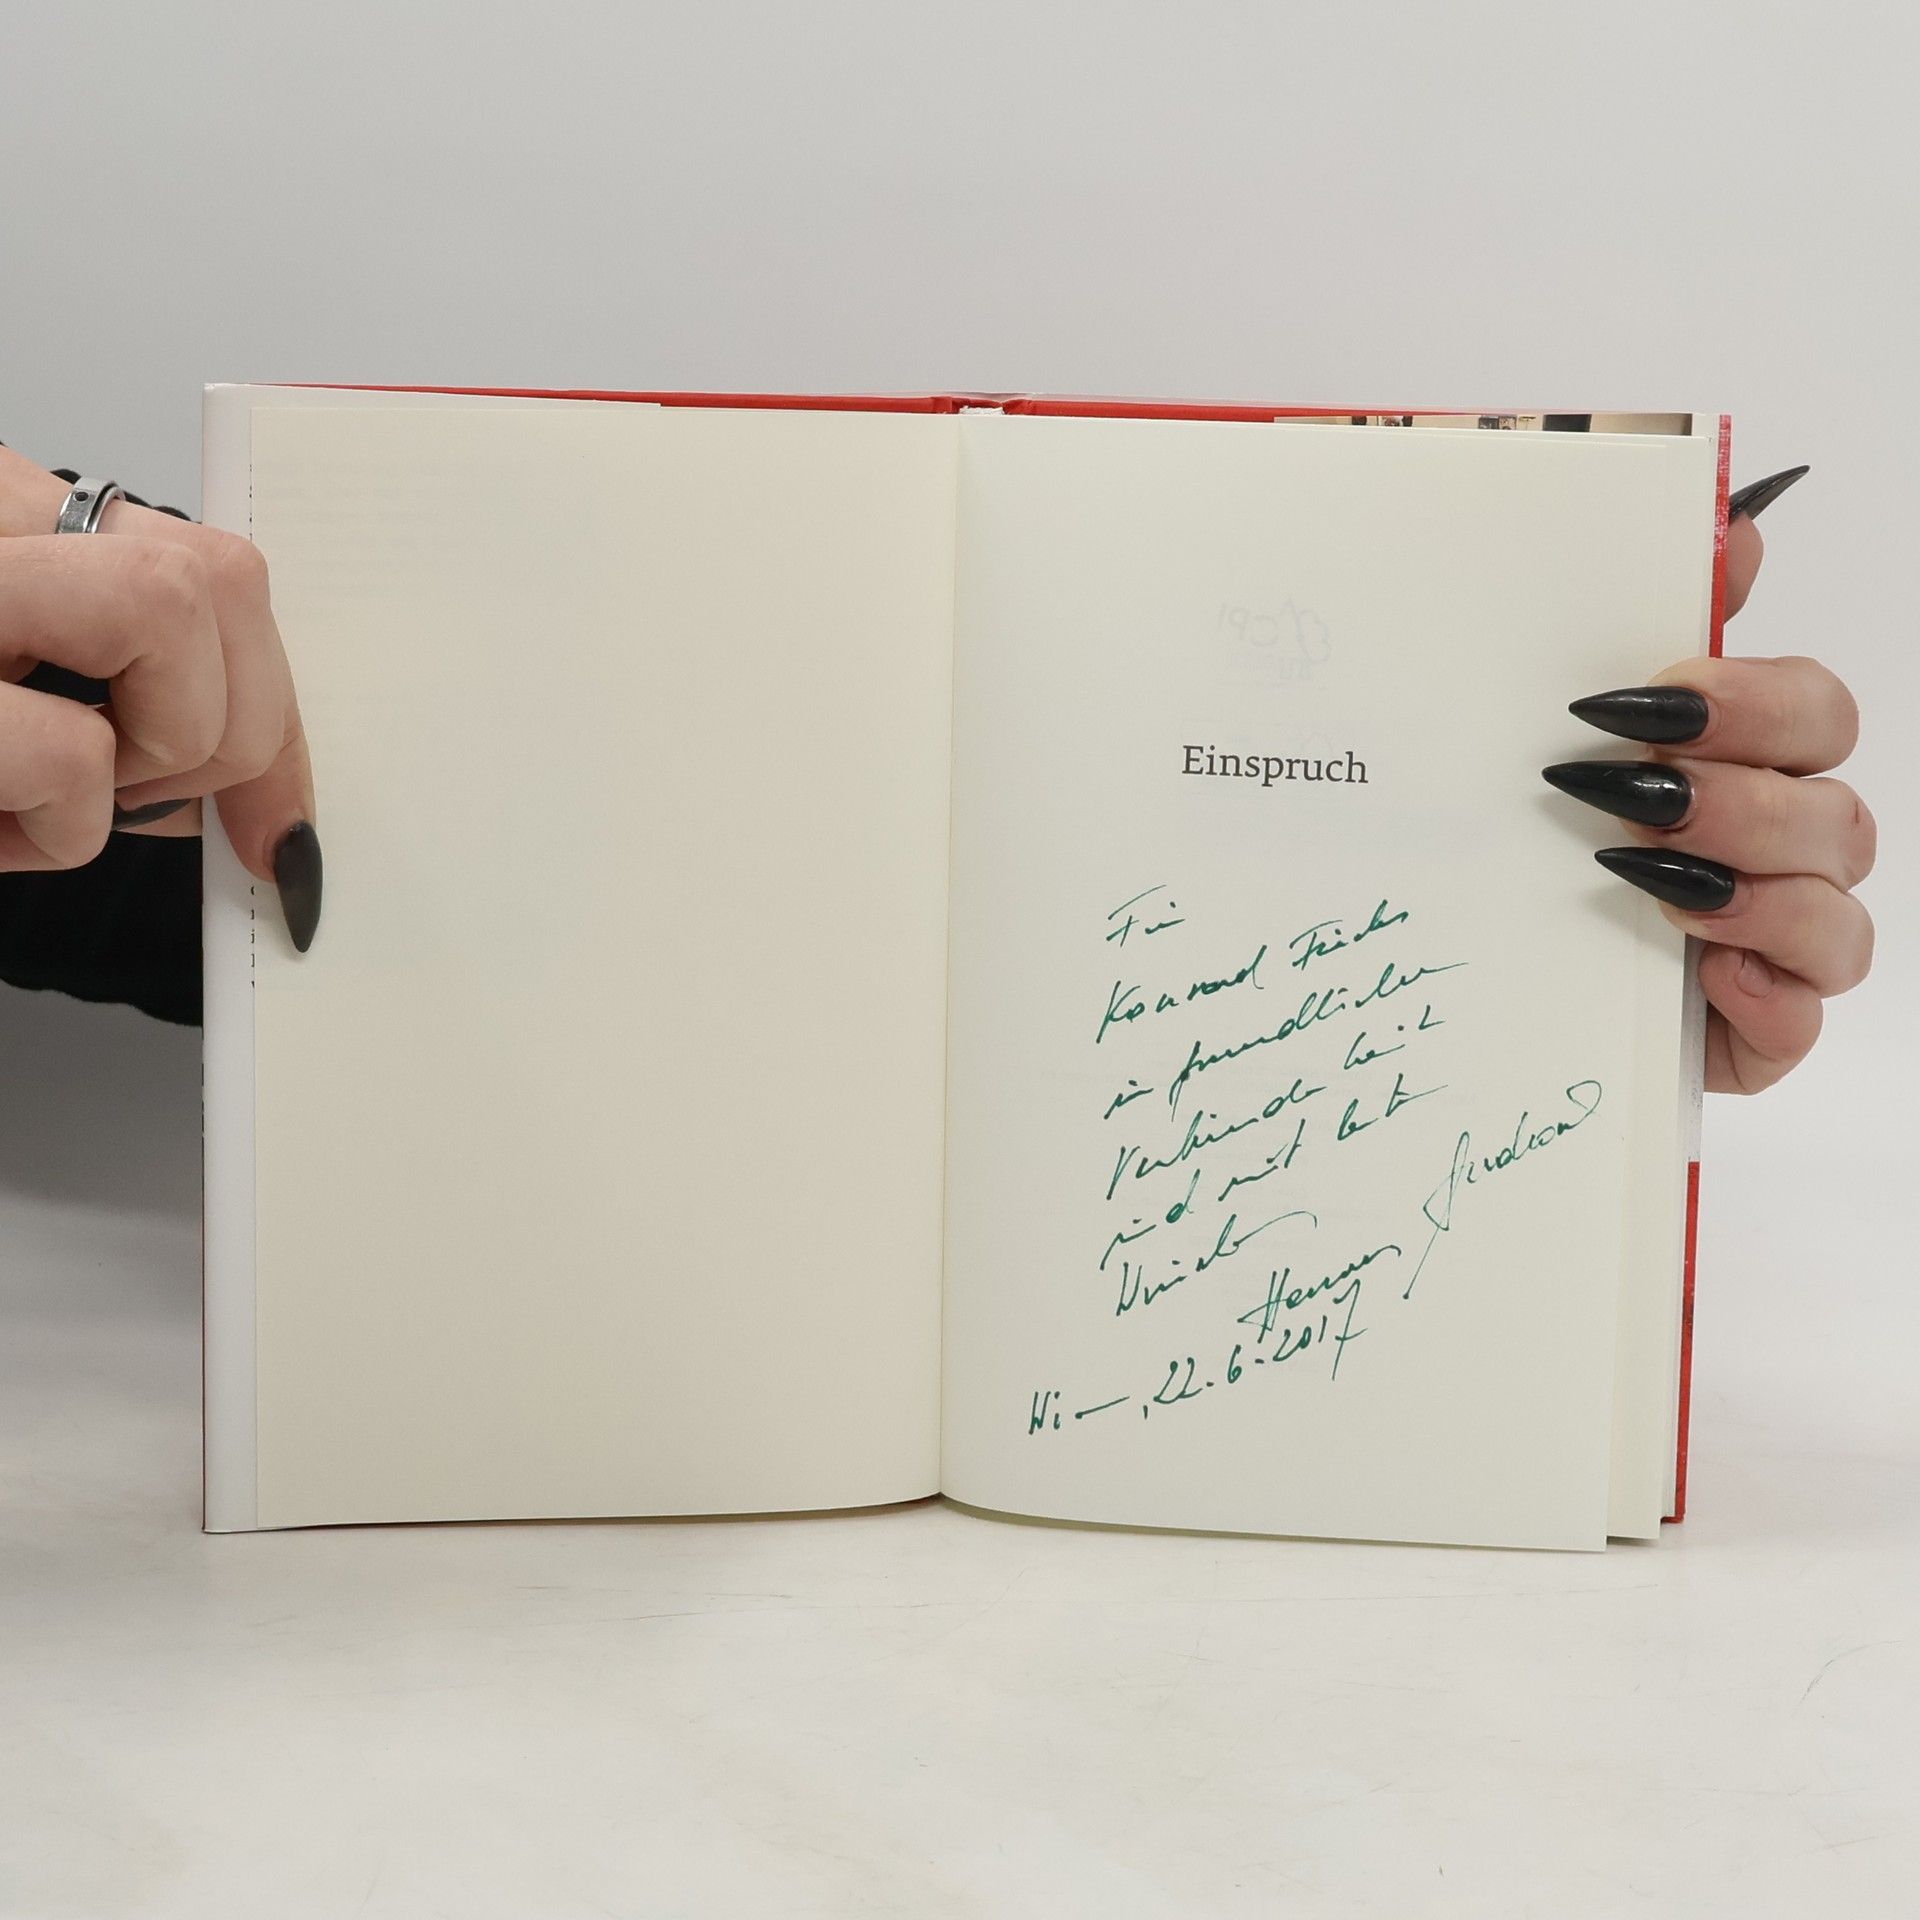 Einspruch
Für
Konrad
in freundlicher
Verbundenheit
und mit besten
Wünschen
Hannes Androsch
Wien, 22.6.2017